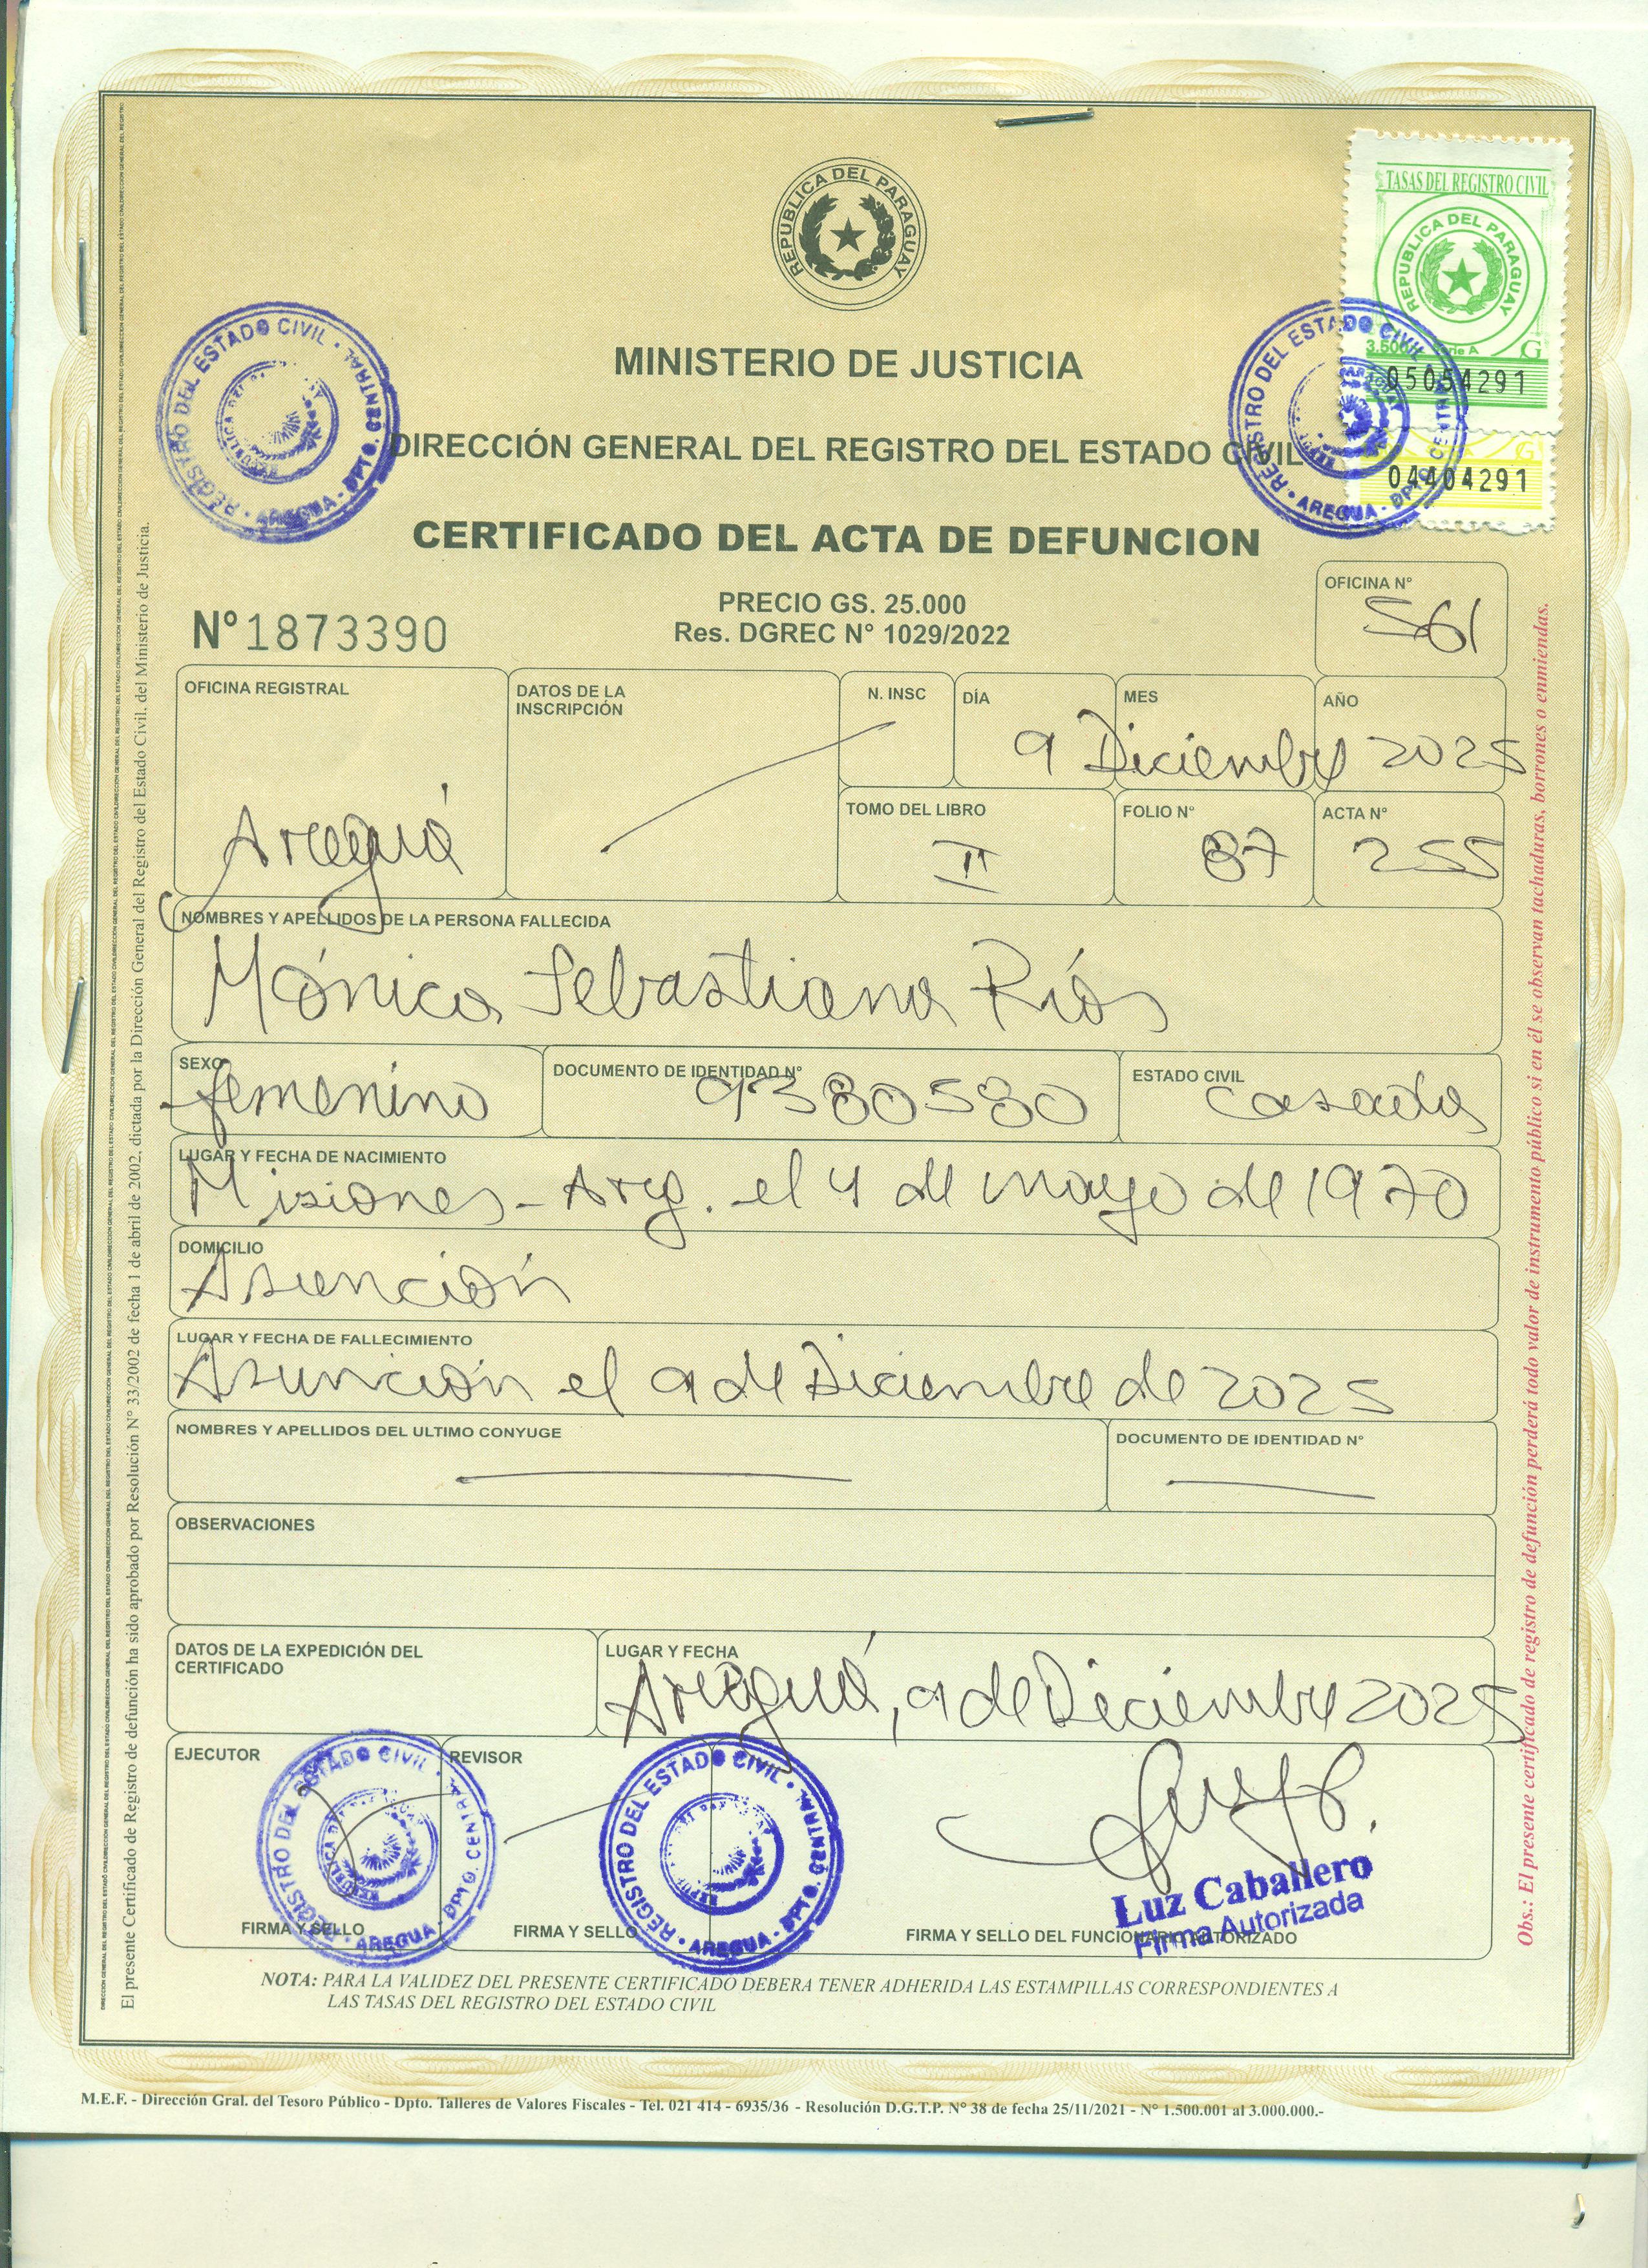 REPUBLICA DEL PARAGUAY
TASAS DEL REGISTRO CIVIL
REPUBLICA DEL PARAGUAY
3.500 Serie A G
05054291
G
04404291
MINISTERIO DE JUSTICIA
DIRECCIÓN GENERAL DEL REGISTRO DEL ESTADO CIVIL
REGISTRO DEL ESTADO CIVIL · AREGUA - DPTO. CENTRAL
REGISTRO DEL ESTADO CIVIL · AREGUA - DPTO. CENTRAL
CERTIFICADO DEL ACTA DE DEFUNCION
PRECIO GS. 25.000
Res. DGREC N° 1029/2022
N° 1873390
OFICINA N°
561
OFICINA REGISTRAL
Areguá
DATOS DE LA
INSCRIPCIÓN
N. INSC
DÍA
9
MES
Diciembre
AÑO
2025
TOMO DEL LIBRO
II
FOLIO N°
87
ACTA N°
255
NOMBRES Y APELLIDOS DE LA PERSONA FALLECIDA
Mónica Sebastiana Ríos
SEXO
femenino
DOCUMENTO DE IDENTIDAD N°
9380580
ESTADO CIVIL
casada
LUGAR Y FECHA DE NACIMIENTO
Misiones - Arg. el 4 de mayo de 1970
DOMICILIO
Asunción
LUGAR Y FECHA DE FALLECIMIENTO
Asunción el 9 de Diciembre de 2025
NOMBRES Y APELLIDOS DEL ULTIMO CONYUGE
DOCUMENTO DE IDENTIDAD N°
OBSERVACIONES
DATOS DE LA EXPEDICIÓN DEL
CERTIFICADO
LUGAR Y FECHA
Areguá, 9 de Diciembre 2025
EJECUTOR
REVISOR
REGISTRO DEL ESTADO CIVIL · AREGUA - DPTO. CENTRAL
REGISTRO DEL ESTADO CIVIL · AREGUA - DPTO. CENTRAL
Luz Caballero
Firma Autorizada
FIRMA Y SELLO
FIRMA Y SELLO
FIRMA Y SELLO DEL FUNCIONARIO AUTORIZADO
NOTA: PARA LA VALIDEZ DEL PRESENTE CERTIFICADO DEBERA TENER ADHERIDA LAS ESTAMPILLAS CORRESPONDIENTES A
LAS TASAS DEL REGISTRO DEL ESTADO CIVIL
M.E.F. - Dirección Gral. del Tesoro Público - Dpto. Talleres de Valores Fiscales - Tel. 021 414 - 6935/36 - Resolución D.G.T.P. N° 38 de fecha 25/11/2021 - N° 1.500.001 al 3.000.000.-
El presente Certificado de Registro de defunción ha sido aprobado por Resolución N° 33/2002 de fecha 1 de abril de 2002, dictada por la Dirección General del Registro del Estado Civil, del Ministerio de Justicia.
Obs.: El presente certificado de registro de defunción perderá todo valor de instrumento público si en él se observan tachaduras, borrones o enmiendas.